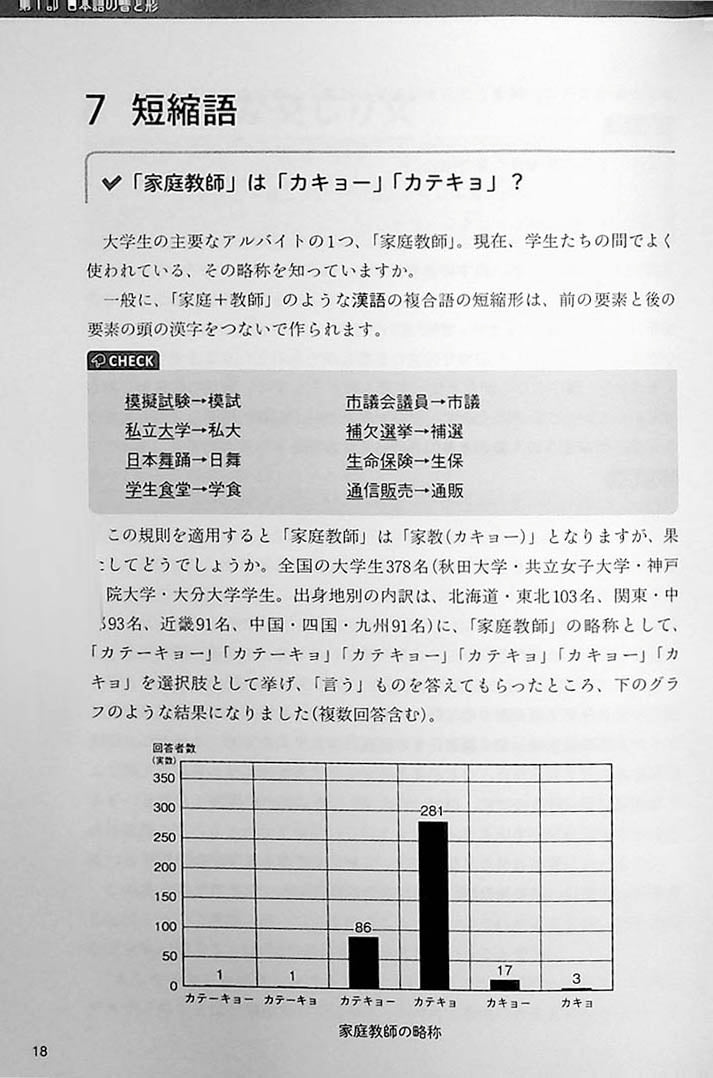 第1部 日本語の音と形
7 短縮語
「家庭教師」は「カキョー」「カテキョ」?
大学生の主要なアルバイトの1つ、「家庭教師」。現在、学生たちの間でよく
使われている、その略称を知っていますか。
一般に、「家庭＋教師」のような漢語の複合語の短縮形は、前の要素と後の
要素の頭の漢字をつないで作られます。
CHECK
模擬試験→模試 市議会議員→市議
私立大学→私大 補欠選挙→補選
日本舞踊→日舞 生命保険→生保
学生食堂→学食 通信販売→通販
この規則を適用すると「家庭教師」は「家教(カキョー)」となりますが、果
してどうでしょうか。全国の大学生378名(秋田大学・共立女子大学・神戸
院大学・大分大学学生。出身地別の内訳は、北海道・東北103名、関東・中
93名、近畿91名、中国・四国・九州91名)に、「家庭教師」の略称として、
「カテーキョー」「カテーキョ」「カテキョー」「カテキョ」「カキョー」「カ
キョ」を選択肢として挙げ、「言う」ものを答えてもらったところ、下のグラ
フのような結果になりました(複数回答含む)。
回答者数
(実数)
350
300
250
200
150
100
50
0
1 1 86 281 17 3
カテーキョー カテーキョ カテキョー カテキョ カキョー カキョ
家庭教師の略称
18